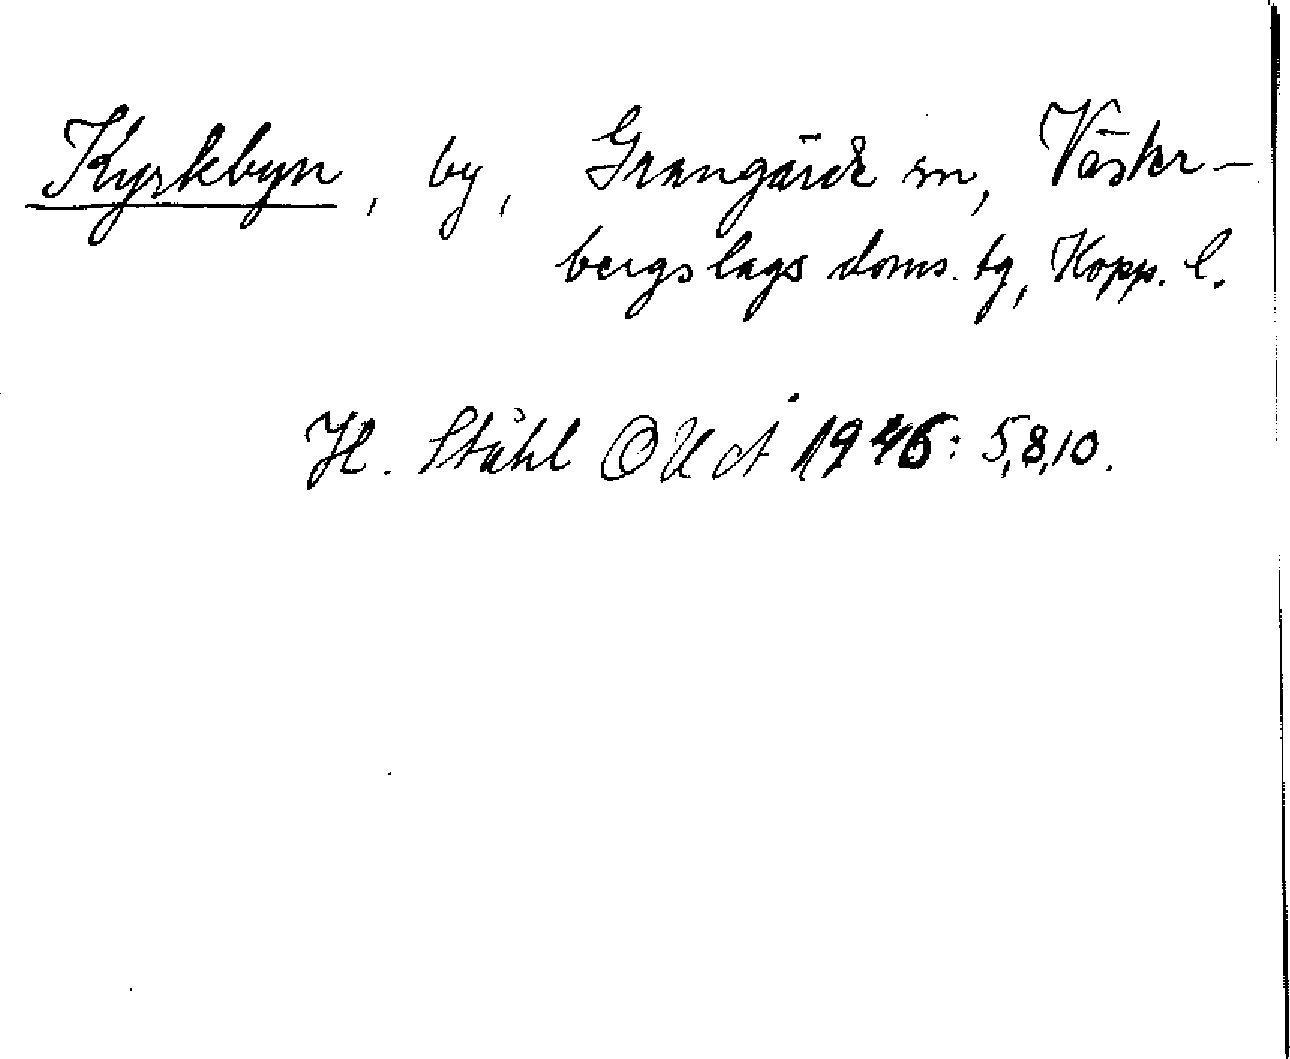 Kyrkbyn, by, Grangärde sn, Väster-
bergslags doms. tg, Kopp. l.
H. Ståhl OUÅ 1946: 5,8,10.